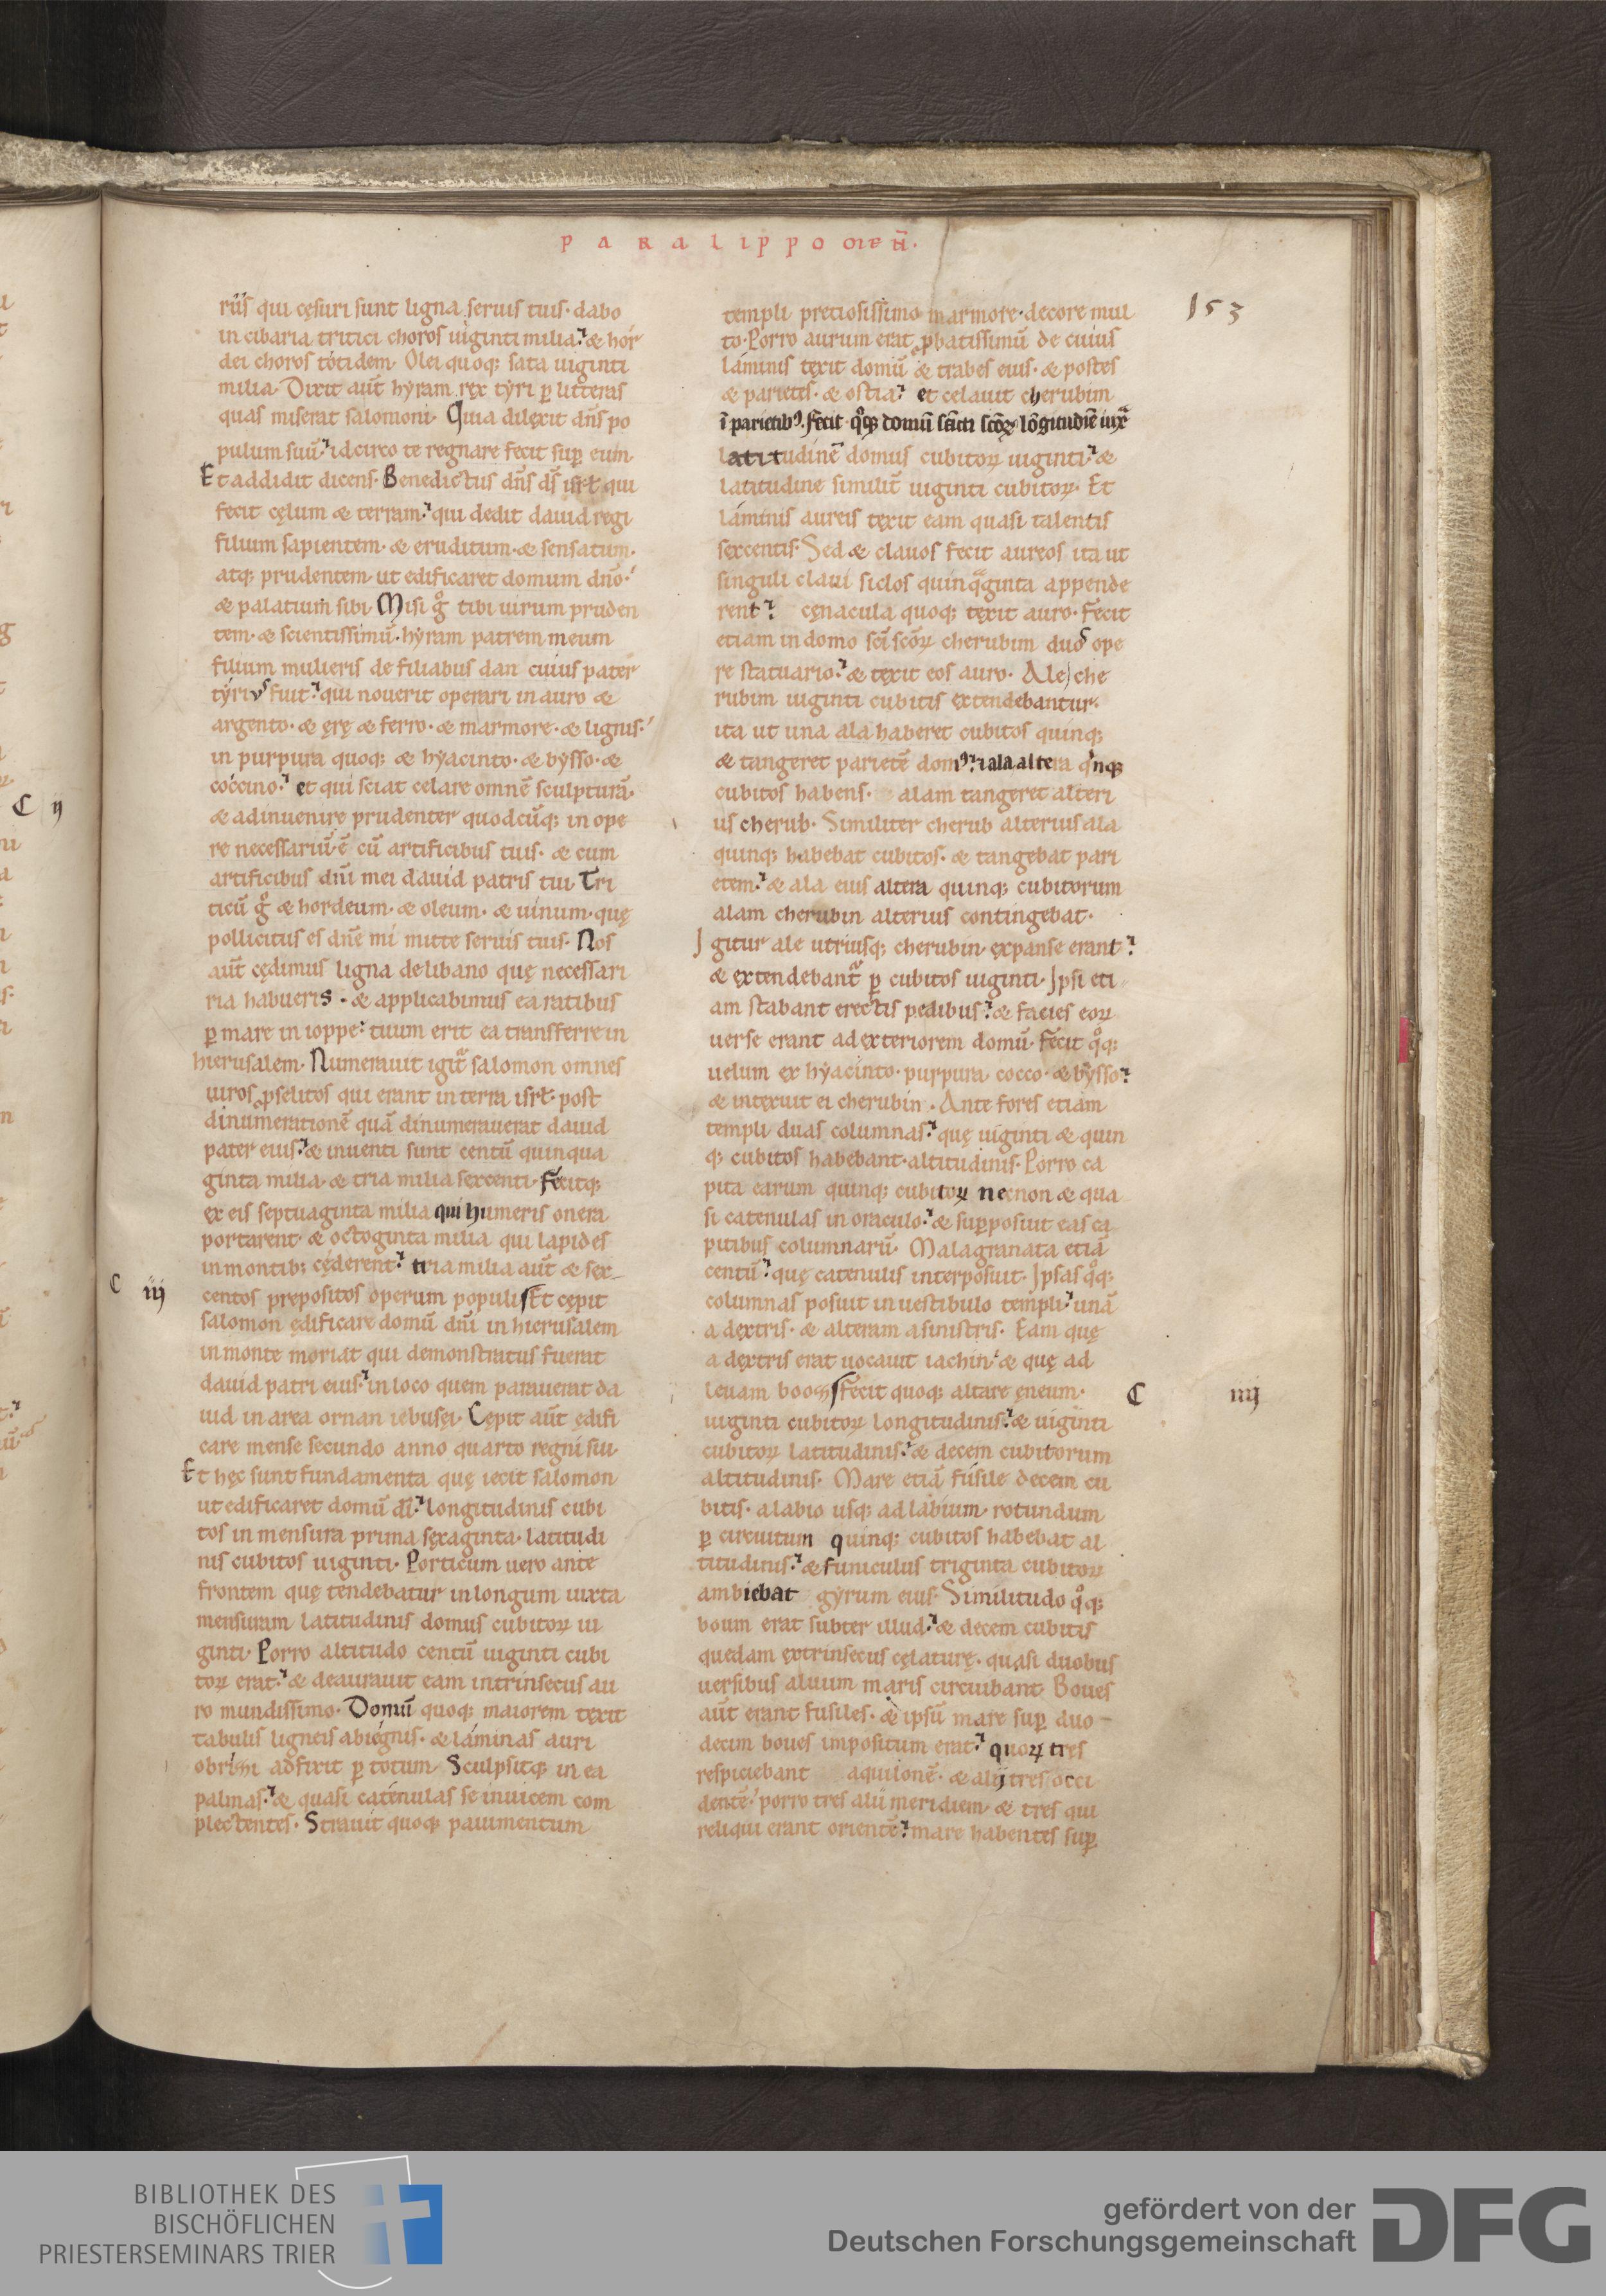 PARALIPPOMEÑ.
153
rĩis qui cęsuri sunt ligna seruis tuis· dabo
in cibaria tritici choros uiginti milia· & hor
dei choros totidem· Olei quoq; sata uiginti
milia· Dixit aut̄ hyram rex tyri p̱ litteras
quas miserat salomoni· Quia dilexit dn̄s po
pulum suū· idcirco te regnare fecit sup̱ eum·
Et addidit dicens· Benedictus dn̄s ds̄ isrl̄ qui
fecit cęlum & terram· qui dedit dauid regi
filium sapientem· & eruditum· & sensatum·
atq; prudentem· ut edificaret domum dn̄o·
& palatium sibi· Misi gͦ tibi uirum pruden
tem· & scientissimū· hyram patrem meum
filium mulieris de filiabus dan cuius pater
tyrius fuit· qui nouerit operari in auro &
argento· & ęrę & ferro· & marmore· & lignis·
in purpura quoq; & hyacinto· & bysso· &
coccino· et qui sciat celare omnē sculpturā·
& adinuenire prudenter quodcūq; in ope
C ij
re necessariū ē cū artificibus tuis· & cum
artificibus dn̄i mei dauid patris tui· Tri
ticū gͦ & hordeum· & oleum· & uinum· quę
pollicitus es dn̄e mi mitte seruis tuis· Nos
aut̄ cędimus ligna de libano quę necessari
ria habueris· & applicabimus ea ratibus
p̱ mare in ioppe· tuum erit ea transferre in
hierusalem· Numerauit igit̄ salomon omnes
uiros p̱selitos qui erant in terra isrl̄· post
dinumerationē quā dinumerauerat dauid
pater eius· & inuenti sunt centū quinqua
ginta milia· & tria milia sexcenti· Fecitq;
ex eis septuaginta milia qui humeris onera
portarent· & octoginta milia qui lapides
in montib; cęderent· tria milia aut̄ & sex
C iij
centos prepositos operum populi· Et cępit
salomon ędificare domū dn̄i in hierusalem
in monte moriat qui demonstratus fuerat
dauid patri eius· in loco quem parauerat da
uid in area ornan iebusęi· Cępit aut̄ ędifi
care mense secundo anno quarto regni sui·
Et hęc sunt fundamenta quę iecit salomon
ut edificaret domū dī· longitudinis cubi
tos in mensura prima sexaginta· latitudi
nis cubitos uiginti· Porticum uero ante
frontem quę tendebatur in longum iuxta
mensuram latitudinis domus cubitoꝝ ui
ginti· Porro altitudo centū uiginti cubi
toꝝ erat· & deaurauit eam intrinsecus au
ro mundissimo· Domū quoq; maiorem texit
tabulis ligneis abiegnis· & láminas auri
obrizi adfixit p̱ totum· Sculpsitq; in ea
palmas· & quasi caténulas se inuicem com
plectentes· Strauit quoq; pauimentum
templi preciosissimo marmore· decore mul
to· Porro aurum erat p̱batissimū de cuius
láminis texit domū & trabes eius· & postes
& parietes· & ostia· et celauit cherubim
ī parietib9· Fecit qͦq; domū sc̄ti sc̄oꝝ lōgitudiē iux̄
latitudinē domus cubitoꝝ uiginti· &
latitudine similit̄ uiginti cubitoꝝ· Et
láminis aureis texit eam quasi talentis
sexcentis· Sed & clauos fecit aureos ita ut
singuli claui siclos quinq̄ginta appende
rent· cęnacula quoq; texit auro· Fecit
etiam in domo sc̄i sc̄oꝝ cherubim duos ope
re statuario· & texit eos auro· Ale che
rubim uiginti cubitis extendebantur·
ita ut una ala haberet cubitos quinq;
& tangeret parietē dom9· ⁊ ala altera qͥnq;
cubitos habens· alam tangeret alteri
us cherub· Similiter cherub alterius ala
quinq; habebat cubitos· & tangebat pari
etem· & ala eius altera quinq; cubitorum
alam cherubin alterius contingebat·
Igitur ale utriusq; cherubin expanse erant·
& extendebant̄ p̱ cubitos uiginti· Ipsi eti
am stabant erectis pedibus· & facies eoꝝ
uerse erant ad exteriorem domū· Fecit qͦq;
uelum ex hyacinto· purpura cocco· & bysso·
& intexuit ei cherubin· Ante fores etiam
templi duas columnas· quę uiginti & quin
q; cubitos habebant· altitudinis· Porro ca
pita earum quinq; cubitoꝝ necnon & qua
si catenulas in oraculo· & sup̱posuit eas ca
pitibus columnarū· Malagranata etiā
centū· quę catenulis interposuit· Ipsas qͦq;
columnas posuit in uestibulo templi· unā
a dextris· & alteram a sinistris· Eam quę
a dextris erat uocauit iachin· & quę ad
leuam booz· Fecit quoq; altare ęneum·
C iiij
uiginti cubitoꝝ longitudinis· & uiginti
cubitoꝝ latitudinis· & decem cubitorum
altitudinis· Mare etiā fusile decem cu
bitis· a labio usq; ad labium· rotundum
p̱ circuitum quinq; cubitos habebat al
titudinis· & funiculus triginta cubitoꝝ
ambiebat gyrum eius· Similitudo qͦq;
boum erat subter illud· & decem cubitis
quedam extrinsecus cęlaturę· quasi duobus
uersibus aluum maris circuibant· Boues
aut̄ erant fusiles· & ipsū mare sup̱ duo
decim boues impositum erat· quoꝝ tres
respiciebant aquilonē· & alij tres occi
dentē· porro tres alii meridiem· & tres qui
reliqui erant orientē· mare habentes sup̱
BIBLIOTHEK DES
BISCHÖFLICHEN
PRIESTERSEMINARS TRIER
gefördert von der
Deutschen Forschungsgemeinschaft
DFG